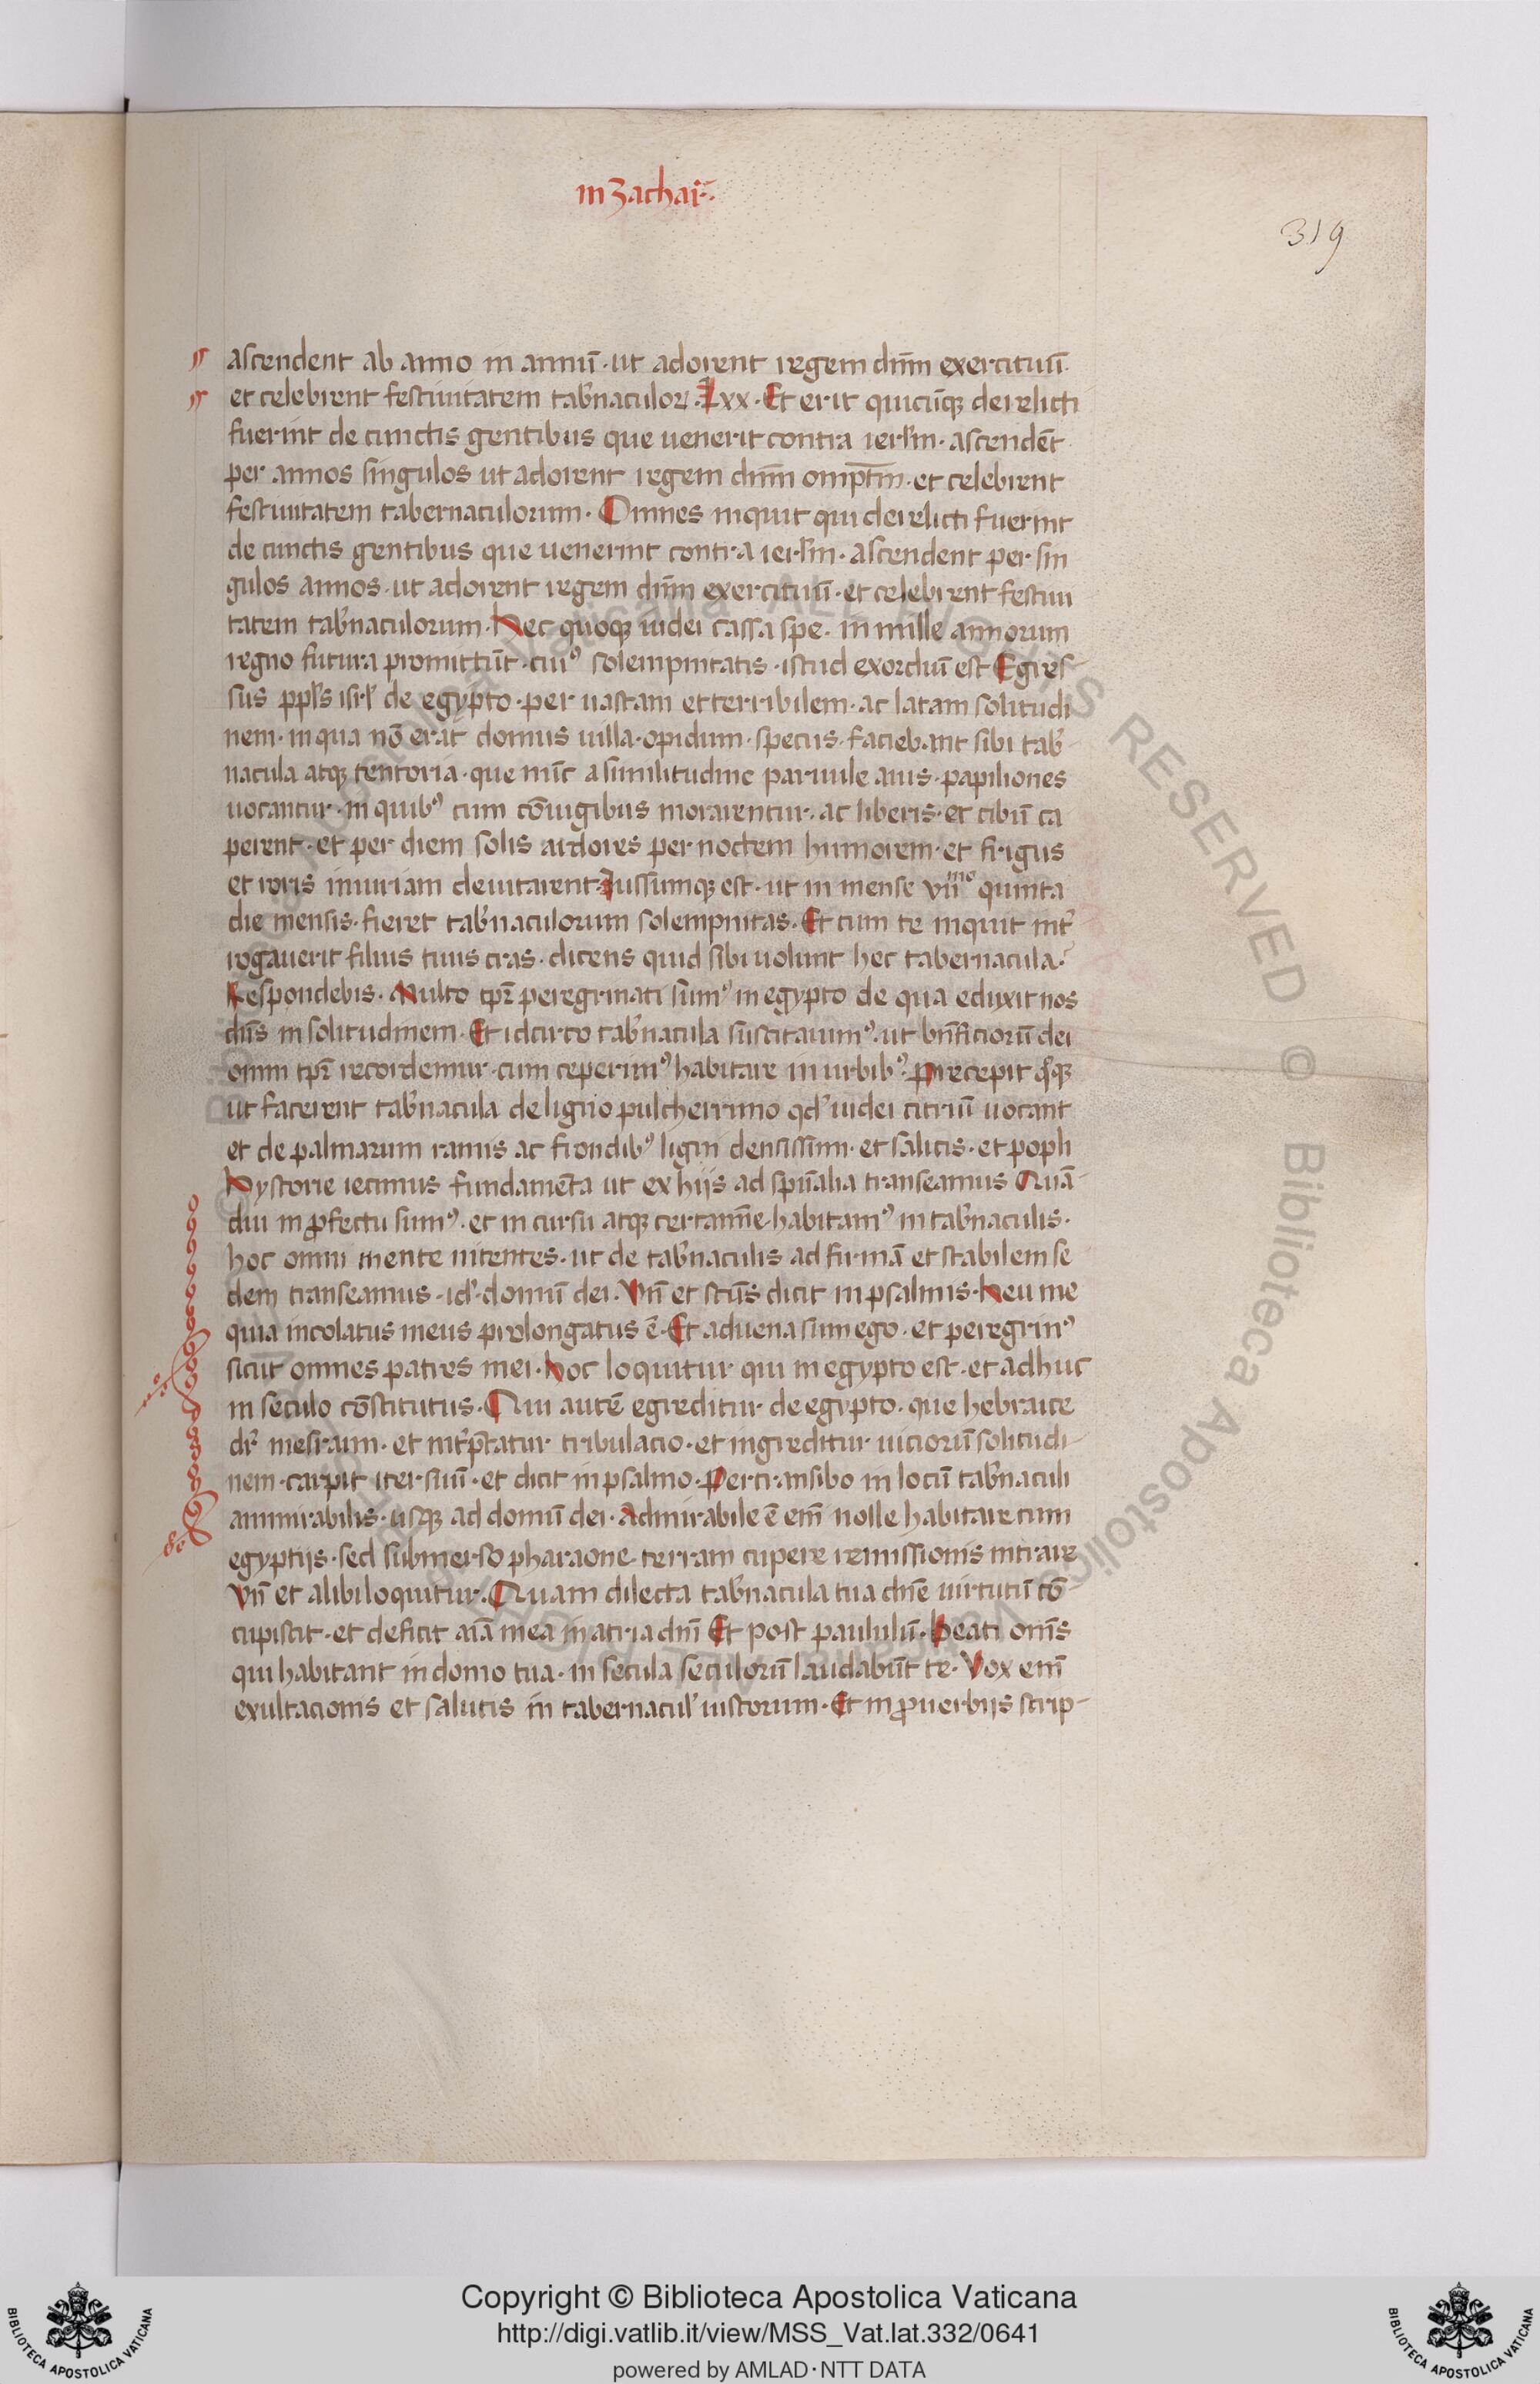 in Zachar̄.
319
ascendent ab anno in annū · ut adorent regem dn̄m exercituū
et celebrent festiuitatem tab̓naculoꝝ · Lxx · Et erit quicūqꝫ derelicti
fuerint de cunctis gentibus que uenerit contra ierl̓m · ascendēt
per annos singulos ut adorent regem dn̄m omp̄tm̄ · et celebrent
festiuitatem tabernaculorum · Omnes inquit qui derelicti fuerint
de cunctis gentibus que uenerint contra ierl̓m · ascendent per sin
gulos annos · ut adorent regem dn̄m exercituū · et celebrent festiui
tatem tab̓naculorum · Hec quoqꝫ iudei cassa spe · in mille annorum
regno futura promittūt · cuiꝰ solempnitatis · istud exordiū est Egres-
sus ppl̓s isrl̓ de egypto · per uastam et terribilem · ac latam solitudi
nem · in qua nō erat domus uilla · opidum · specus · faciebant sibi tab̓-
nacula atqꝫ tentoria · que nūc a similitudine paruule auis · papiliones
uocantur · in quibꝰ cum cōiugibus morarentur · ac liberis · et cibū ca
perent · et per diem solis ardores per noctem humorem · et frigus
et roris iniuriam deuitarent · Iussumqꝫ est · ut in mense vii͏ᵐᵒ quinta
die mensis · fieret tab̓naculorum solempnitas · Et cum te inquit int̓
rogauerit filius tuus cras · dicens quid sibi uolunt hec tabernacula ·
Respondebis · Multo tp̄r̄ peregrinati sumꝰ in egypto de qua eduxit nos
dn̄s in solitudinem · Et idcirco tab̓nacula suscitauimꝰ · ut bn̄ficiorū dei
omni tp̄r̄ recordemur · cum ceperimꝰ habitare in urbibꝰ · Precepit qͦqꝫ
ut facerent tab̓nacula de ligno pulcherrimo qd̓ iudei citriū uocant
et de palmarum ramis ac frondibꝰ ligni densissimi · et salicis · et popli
Hystorie iecimus fundamēta ut ex hijs ad spūalia transeamus Quā-
diu in ꝓfectu sumꝰ · et in cursu atqꝫ certamīne · habitamꝰ in tab̓naculis ·
hoc omni mente nitentes · ut de tab̓naculis ad firmā et stabilem se
dem transeamus · id̓ · domū dei · Vn̄ et sc̄us dicit in psalmis · Heu me
quia incolatus meus prolongatus ē · Et aduena sum ego · et peregrinꝰ
sicut omnes patres mei · Hoc loquitur qui in egypto est · et adhuc
in seculo cōstitutus · Qui autē egreditur de egypto · que hebraice
dr̄ mesraim · et int̓p̄tatur tribulacio · et ingreditur uiciorū solitudi-
nem · carpit iter suū · et dicit in psalmo · Pertransibo in locū tab̓naculi
ammirabilis · usqꝫ ad domū dei · Admirabile ē em̄ nolle habitare cum
egyptijs · sed submerso pharaone terram cupere remissionis intrare
Vn̄ et alibi loquitur · Quam dilecta tab̓nacula tua dn̄e uirtutū cō-
cupiscit · et deficit aīa mea in atria dn̄i Et post paululū · Beati om̄s
qui habitant in domo tua · in secula seculorū laudabūt te · Vox em̄
exultacionis et salutis in tabernacul̓ iustorum · Et in ꝓuerbijs scrip-
Copyright © Biblioteca Apostolica Vaticana
http://digi.vatlib.it/view/MSS_Vat.lat.332/0641
powered by AMLAD·NTT DATA